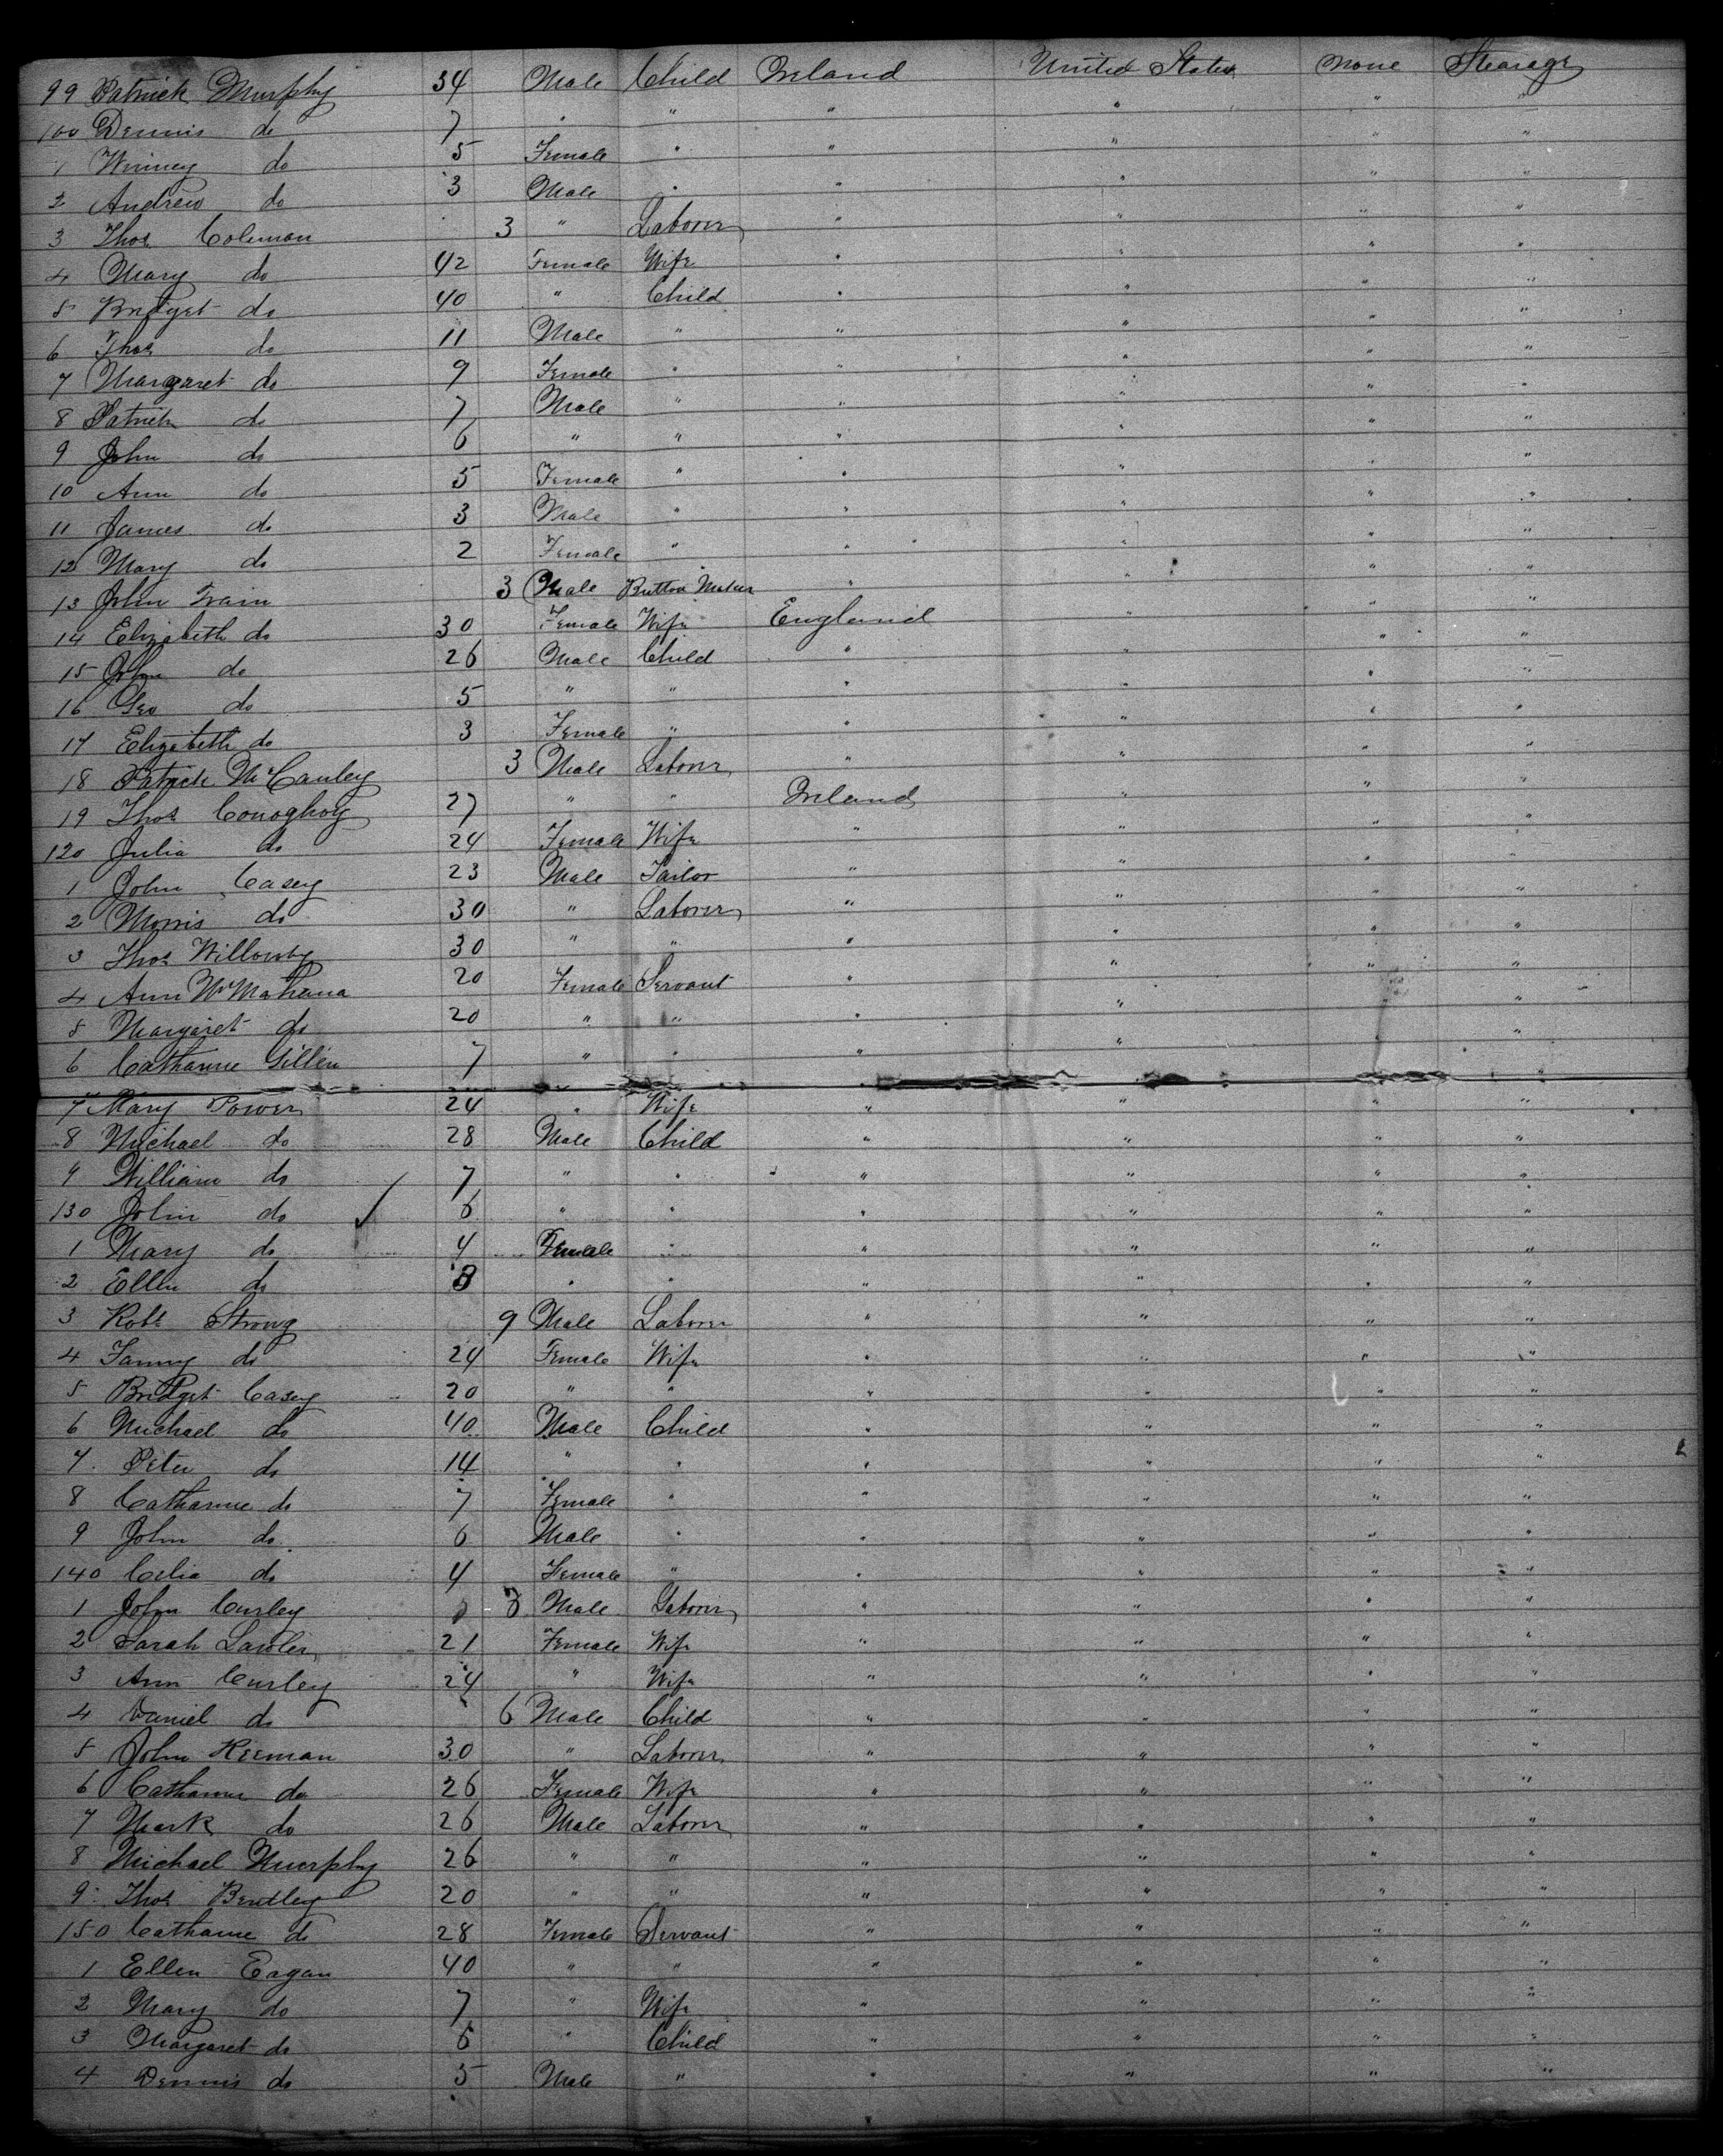 99 Patrick Murphy 34 Male Child Ireland United States None Stearage
100 Dennis do 7 " " " " " "
1 Winney do 5 Female " " " " "
2 Andrew do 3 Male " " " " "
3 Thos Coleman 3 " Laborer " " " "
4 Mary do 42 Female Wife " " " "
5 Bridget do 40 " Child " " " "
6 Thos do 11 Male " " " " "
7 Margaret do 9 Female " " " " "
8 Patrick do 7 Male " " " " "
9 John do 6 " " " " " "
10 Ann do 5 Female " " " " "
11 James do 3 Male " " " " "
12 Mary do 2 Female " " " " "
13 John Train 3 Male Button Maker " " " "
14 Elizabeth do 30 Female Wife England " " "
15 John do 26 Male Child " " " "
16 Geo do 5 " " " " " "
17 Elizabeth do 3 Female " " " " "
18 Patrick McCauley 3 Male Laborer " " " "
19 Thos Conoghoy 27 " " Ireland " " "
120 Julia do 24 Female Wife " " " "
1 John Casey 23 Male Tailor " " " "
2 Morris do 30 " Laborer " " " "
3 Thos Willowby 30 " " " " " "
4 Ann McMahana 20 Female Servant " " " "
5 Margaret do 20 " " " " " "
6 Catharine Gillen 7 " " " " " "
7 Mary Power 24 " Wife " " " "
8 Michael do 28 Male Child " " " "
9 William do 7 " " " " " "
130 John do 6 " " " " " "
1 Mary do 4 Female " " " " "
2 Ellen do 3 " " " " " "
3 Robt Strong 9 Male Laborer " " " "
4 Fanny do 24 Female Wife " " " "
5 Bridget Casey 20 " " " " " "
6 Michael do 40 Male Child " " " "
7 Peter do 14 " " " " " "
8 Catharine do 7 Female " " " " "
9 John do 6 Male " " " " "
140 Celia do 4 Female " " " " "
1 John Curley 3 Male Laborer " " " "
2 Sarah Lawler 21 Female Wife " " " "
3 Ann Curley 24 " Wife " " " "
4 Daniel do 6 Male Child " " " "
5 John Keenan 30 " Laborer " " " "
6 Catharine do 26 Female Wife " " " "
7 Mark do 26 Male Laborer " " " "
8 Michael Murphy 26 " " " " " "
9 Thos Bentley 20 " " " " " "
150 Catharine do 28 Female Servant " " " "
1 Ellen Eagan 40 " " " " " "
2 Mary do 7 " Wife " " " "
3 Margaret do 6 " Child " " " "
4 Dennis do 5 Male " " " " "